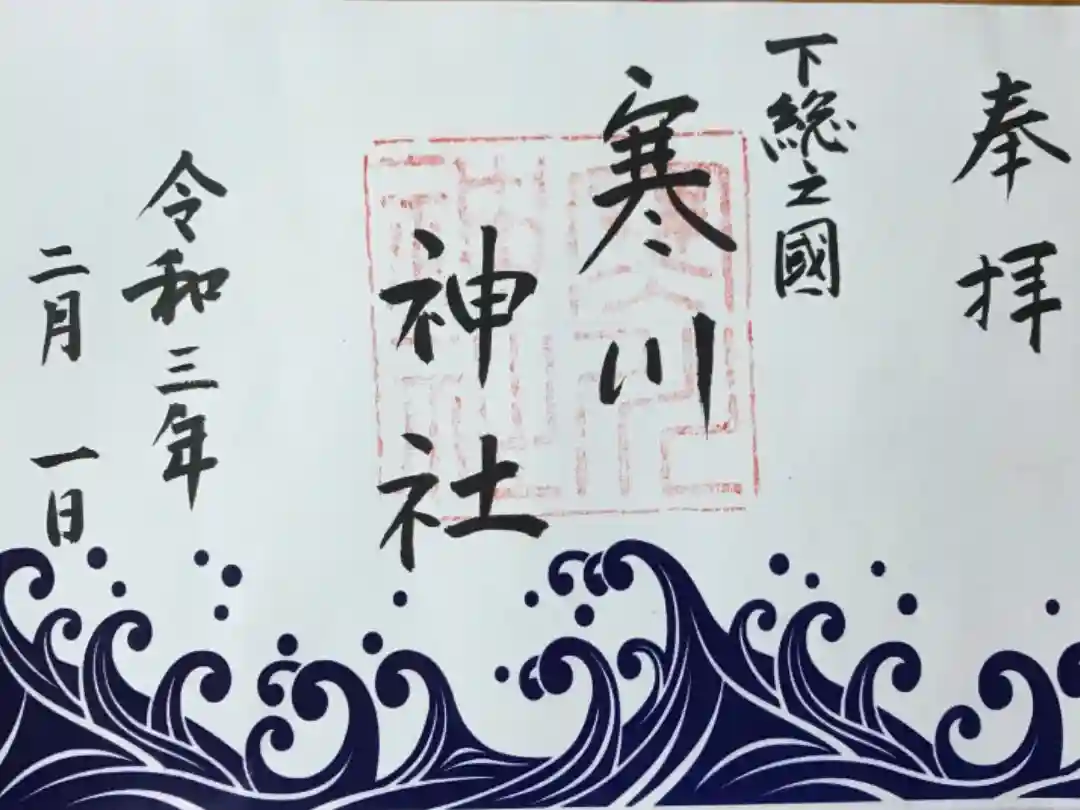 奉拝
下総之國
寒川
神社
令和三年
二月一日